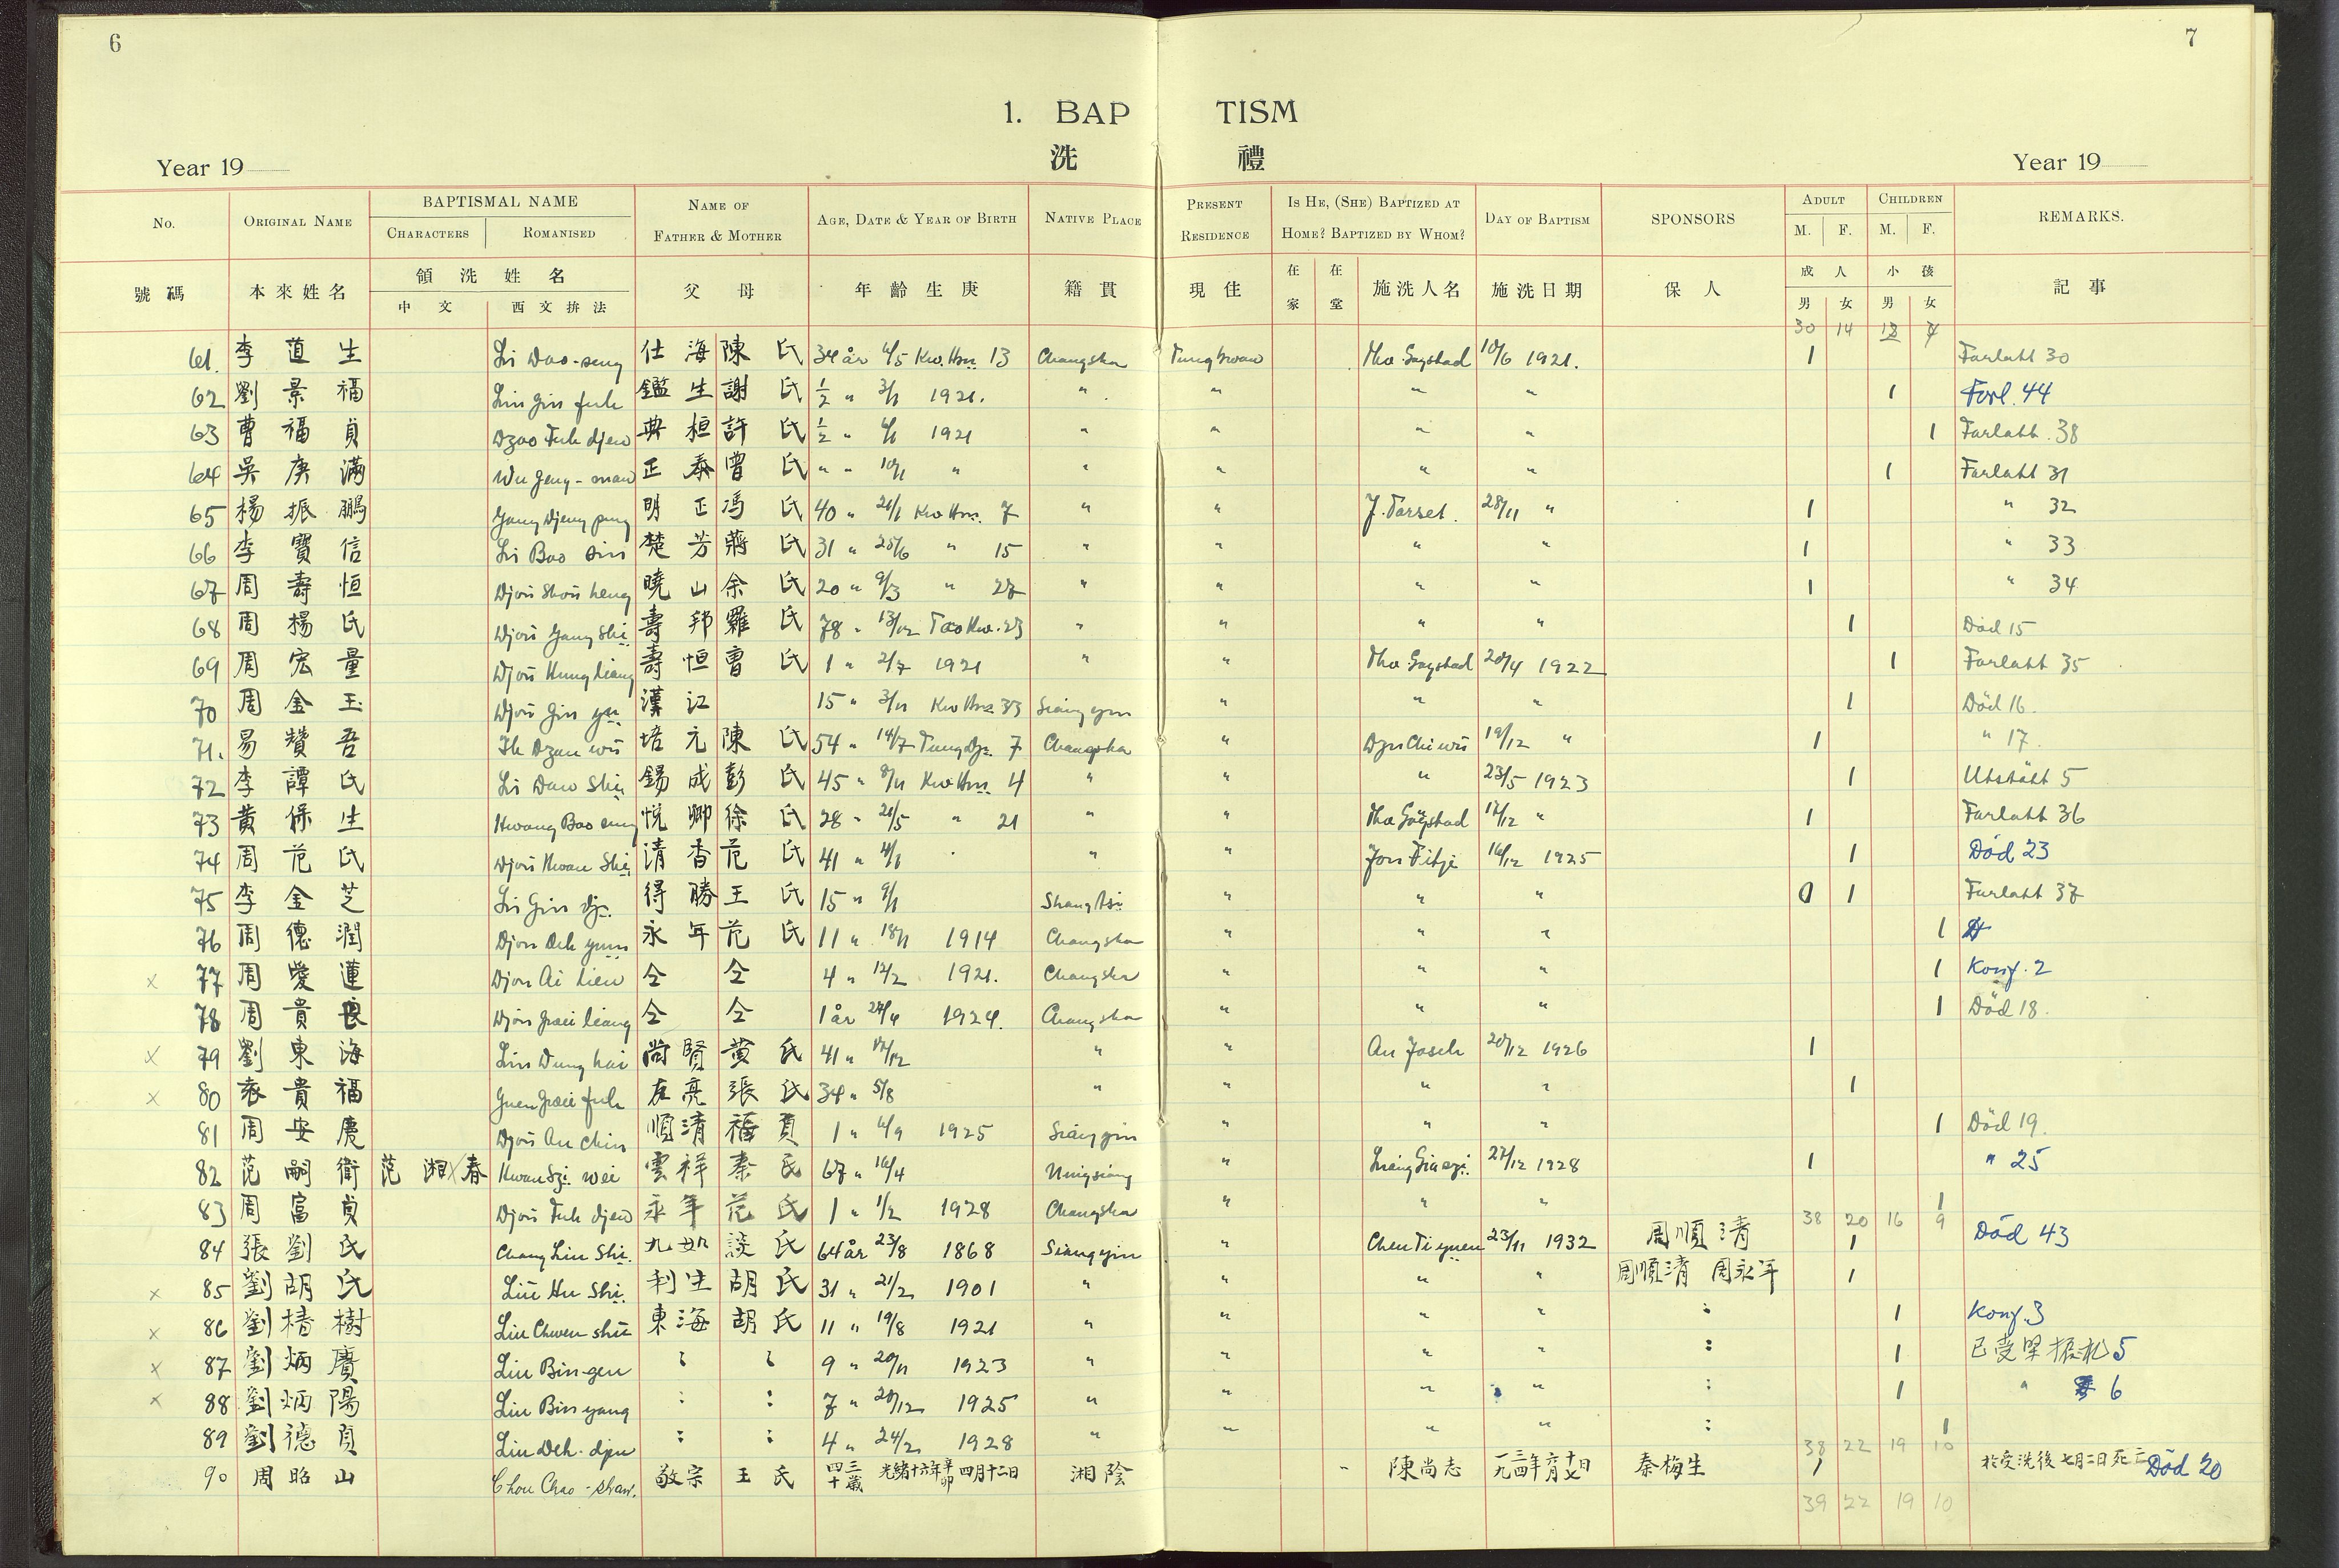 6
7
1. BAP TISM
洗 禮
Year 19
Year 19
No. ORIGINAL NAME BAPTISMAL NAME CHARACTERS ROMANISED NAME OF FATHER & MOTHER AGE, DATE & YEAR OF BIRTH NATIVE PLACE PRESENT RESIDENCE IS HE, (SHE) BAPTIZED AT HOME? BAPTIZED BY WHOM? DAY OF BAPTISM SPONSORS ADULT M. F. CHILDREN M. F. REMARKS.
號碼 本來姓名 領洗姓名 中文 西文拚法 父母 年齡生庚 籍貫 現住 在家 在堂 施洗人名 施洗日期 保人 成人 男 女 小孩 男 女 記事
30 14
61. 李道生 Li Dao-seng 仕海 陳氏 34 år 4/5 Kw. Hsü 13 Changsha 10/6 1921. 1 Forlatt 30
62 劉景福 Liu Gin fuh 鑑生 謝氏 1/2 " 3/1 1921. " " " " 1 Forl. 44
63 曹福貞 Dzao Fuh djen 典桓 許氏 1/2 " 1921 " " " " 1 Forlatt. 38
64 吳庚滿 Wu Geng-man 正泰 曾氏 " " 10/1 " " " " " 1 Forlatt 31
65 楊振鵬 Yang Djeng peng 明正 馮氏 40 " 21/1 Kw Hsü. 7 " " J. Tarset. 28/11 " 1 " 32
66 李寶信 Li Bao sin 楚芳 蔣氏 31 " 25/6 " 15 " " " " 1 " 33
67 周壽恒 Djou Shou heng 曉山 余氏 20 " 9/3 " 27 " " " " 1 " 34
68 周楊氏 Djou Yang Shi 壽邦 羅氏 78 " 13/12 Tao Kw. 23 " " " " 1 Död 15
69 周宏量 Djou Hung liang 壽恒 曹氏 1 " 2/7 1921 " " 20/4 1922 1 Forlatt 35
70 周金玉 Djou Gin yu 漢江 15 " 3/11 Kw Hsü 33 Siang yin " " " 1 Död 16.
71. 易贊吾 Ih Dzan wu 培元 陳氏 54 " 14/7 Tung Dji 7 Changsha " Dzu Chi wu 19/12 " 1 " 17.
72 李譚氏 Li Dan Shi 錫成 彭氏 45 " 8/11 Kw Hsü. 4 " " " 23/5 1923 1 Utstött 5
73 黃保生 Hwang Bao seng 悅卿 徐氏 28 " 21/5 " 21 " " 17/12 " 1 Forlatt 36
74 周范氏 Djou Hwan Shi 清香 范氏 41 " 4/8 " " Jon Fitje 16/12 1925 1 Död 23
75 李金芝 Li Gin dji 得勝 王氏 15 " 9/8 " " " 1 Forlatt 37
76 周德潤 Djou Deh yuin 永年 范氏 11 " 18/11 1914 Changsha " " " 1
x 77 周愛蓮 Djou Ai lien 仝 仝 4 " 12/2 1921. Changsha " " " 1 Konf. 2
78 周貴良 Djou Gwei liang 仝 仝 1 år 1924. Changsha " " " 1 Död 18.
x 79 劉東海 Liu Dung hai 尚賢 黃氏 41 " 17/12 " " 20/12 1926 1
x 80 袁貴福 Yuen Gwei fuh 張氏 34 " 5/8 " " " " 1
81 周安慶 Djou An chin 順清 福貞 1 " 1925 Siang yin " " " 1 Död 19.
82 范嗣衛 范湘春 Hwan Szi wei 雲祥 秦氏 67 " 16/4 Ningsiang " 27/12 1928 1 " 25
83 周富貞 Djou Fuh djen 永年 范氏 1 " 1/2 1928 Changsha " " " 1
38 20 16 9
84 張劉氏 Chang Liu Shi. 九如 談氏 64 år 23/8 1868 Siangyin " Chen Ti yuen 23/11 1932 周順清 1 Död 43
x 85 劉胡氏 Liu Hu Shi. 利生 胡氏 31 " 21/2 1901 " " " " 周順清 周永年 1
x 86 劉椿樹 Liu Chwen shu 東海 胡氏 11 " 19/8 1921 " " " " 1 Konf. 3
x 87 劉炳賡 Liu Bin-gen 9 " 20/11 1923 " " " " 1 已受堅振礼 5
x 88 劉炳陽 Liu Bin yang 7 " 29/12 1925 " " " " 1 " 6
89 劉德貞 Liu Deh-djen 4 " 24/2 1928 " " " " 1
38 22 19 10
90 周昭山 Chou Chao-shan. 敬宗 王氏 四十三歲 光緒十六年辛卯四月十二日 湘陰 陳尚志 一九三四年六月十七日 秦梅生 1 於受洗後七月二日死亡 Död 20
39 22 19 10